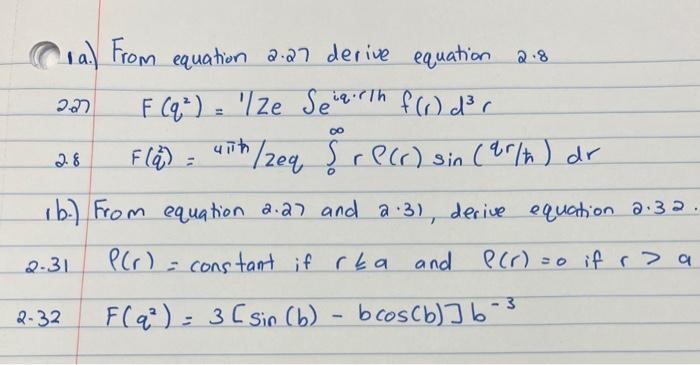 1a.) From equation 2.27 derive equation 2.8
2.27 F(q²) = 1/Ze ∫e^{iq·r/h} f(r) d³r
2.8 F(q²) = 4πħ/zeq ∫₀^∞ r ρ(r) sin (qr/ħ) dr
1b.) From equation 2.27 and 2.31, derive equation 2.32.
2.31 ρ(r) = constant if r ≤ a and ρ(r) = 0 if r > a
2.32 F(q²) = 3[sin(b) - bcos(b)]b⁻³